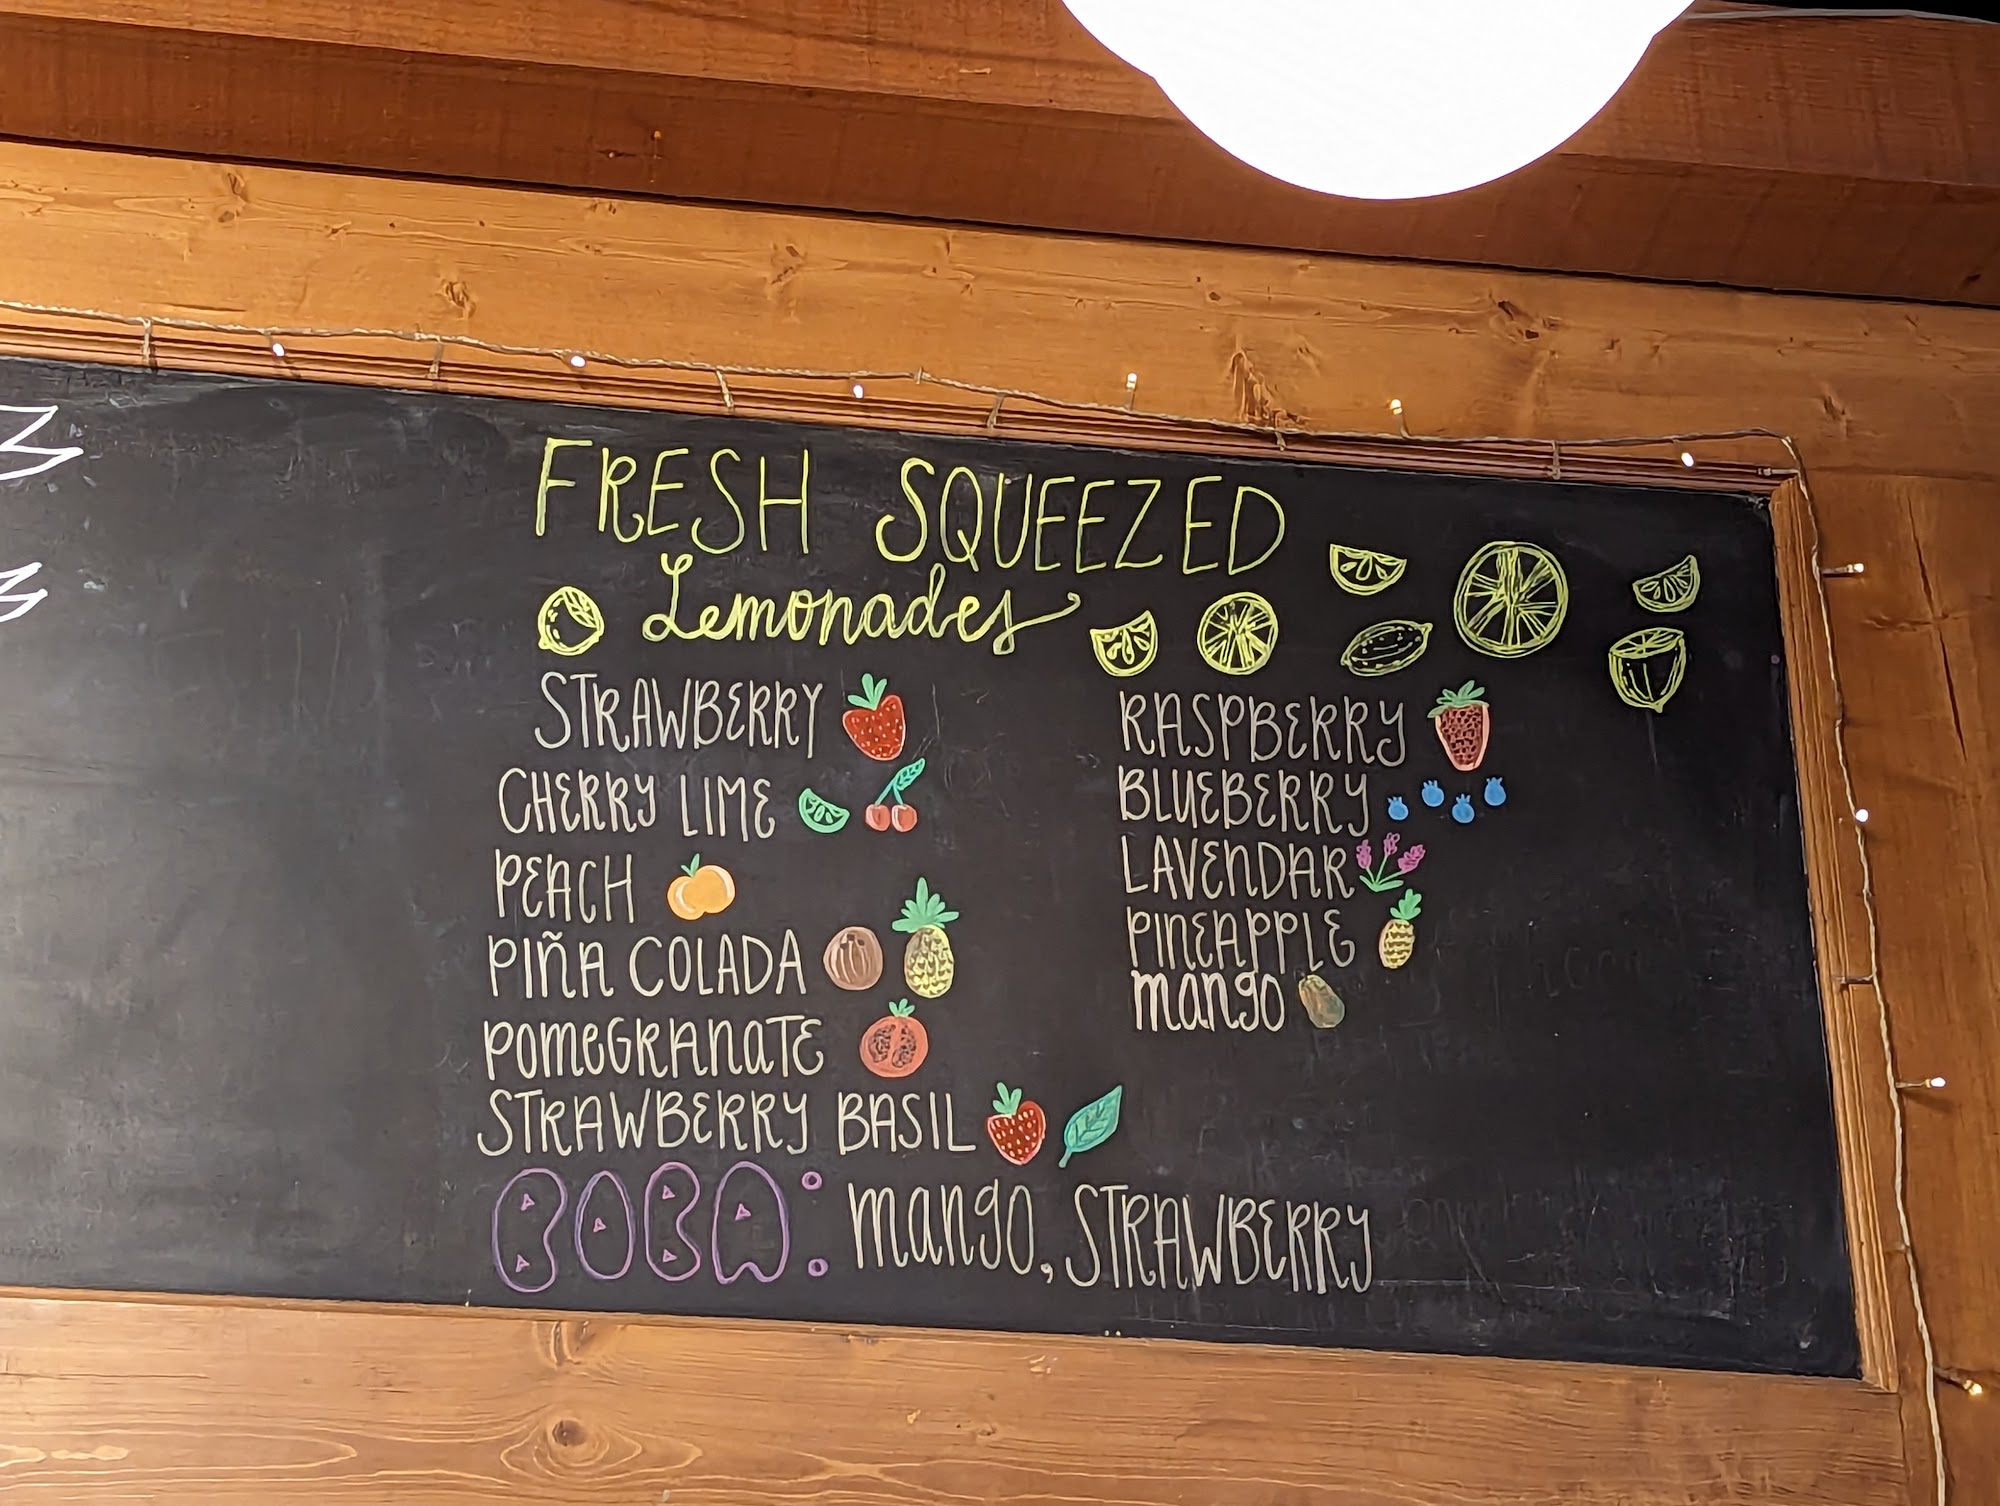 FRESH SQUEEZED
Lemonades
STRAWBERRY
CHERRY LIME
PEACH
PIÑA COLADA
POMEGRANATE
STRAWBERRY BASIL
RASPBERRY
BLUEBERRY
LAVENDAR
PINEAPPLE
mango
BOBA: mango, STRAWBERRY